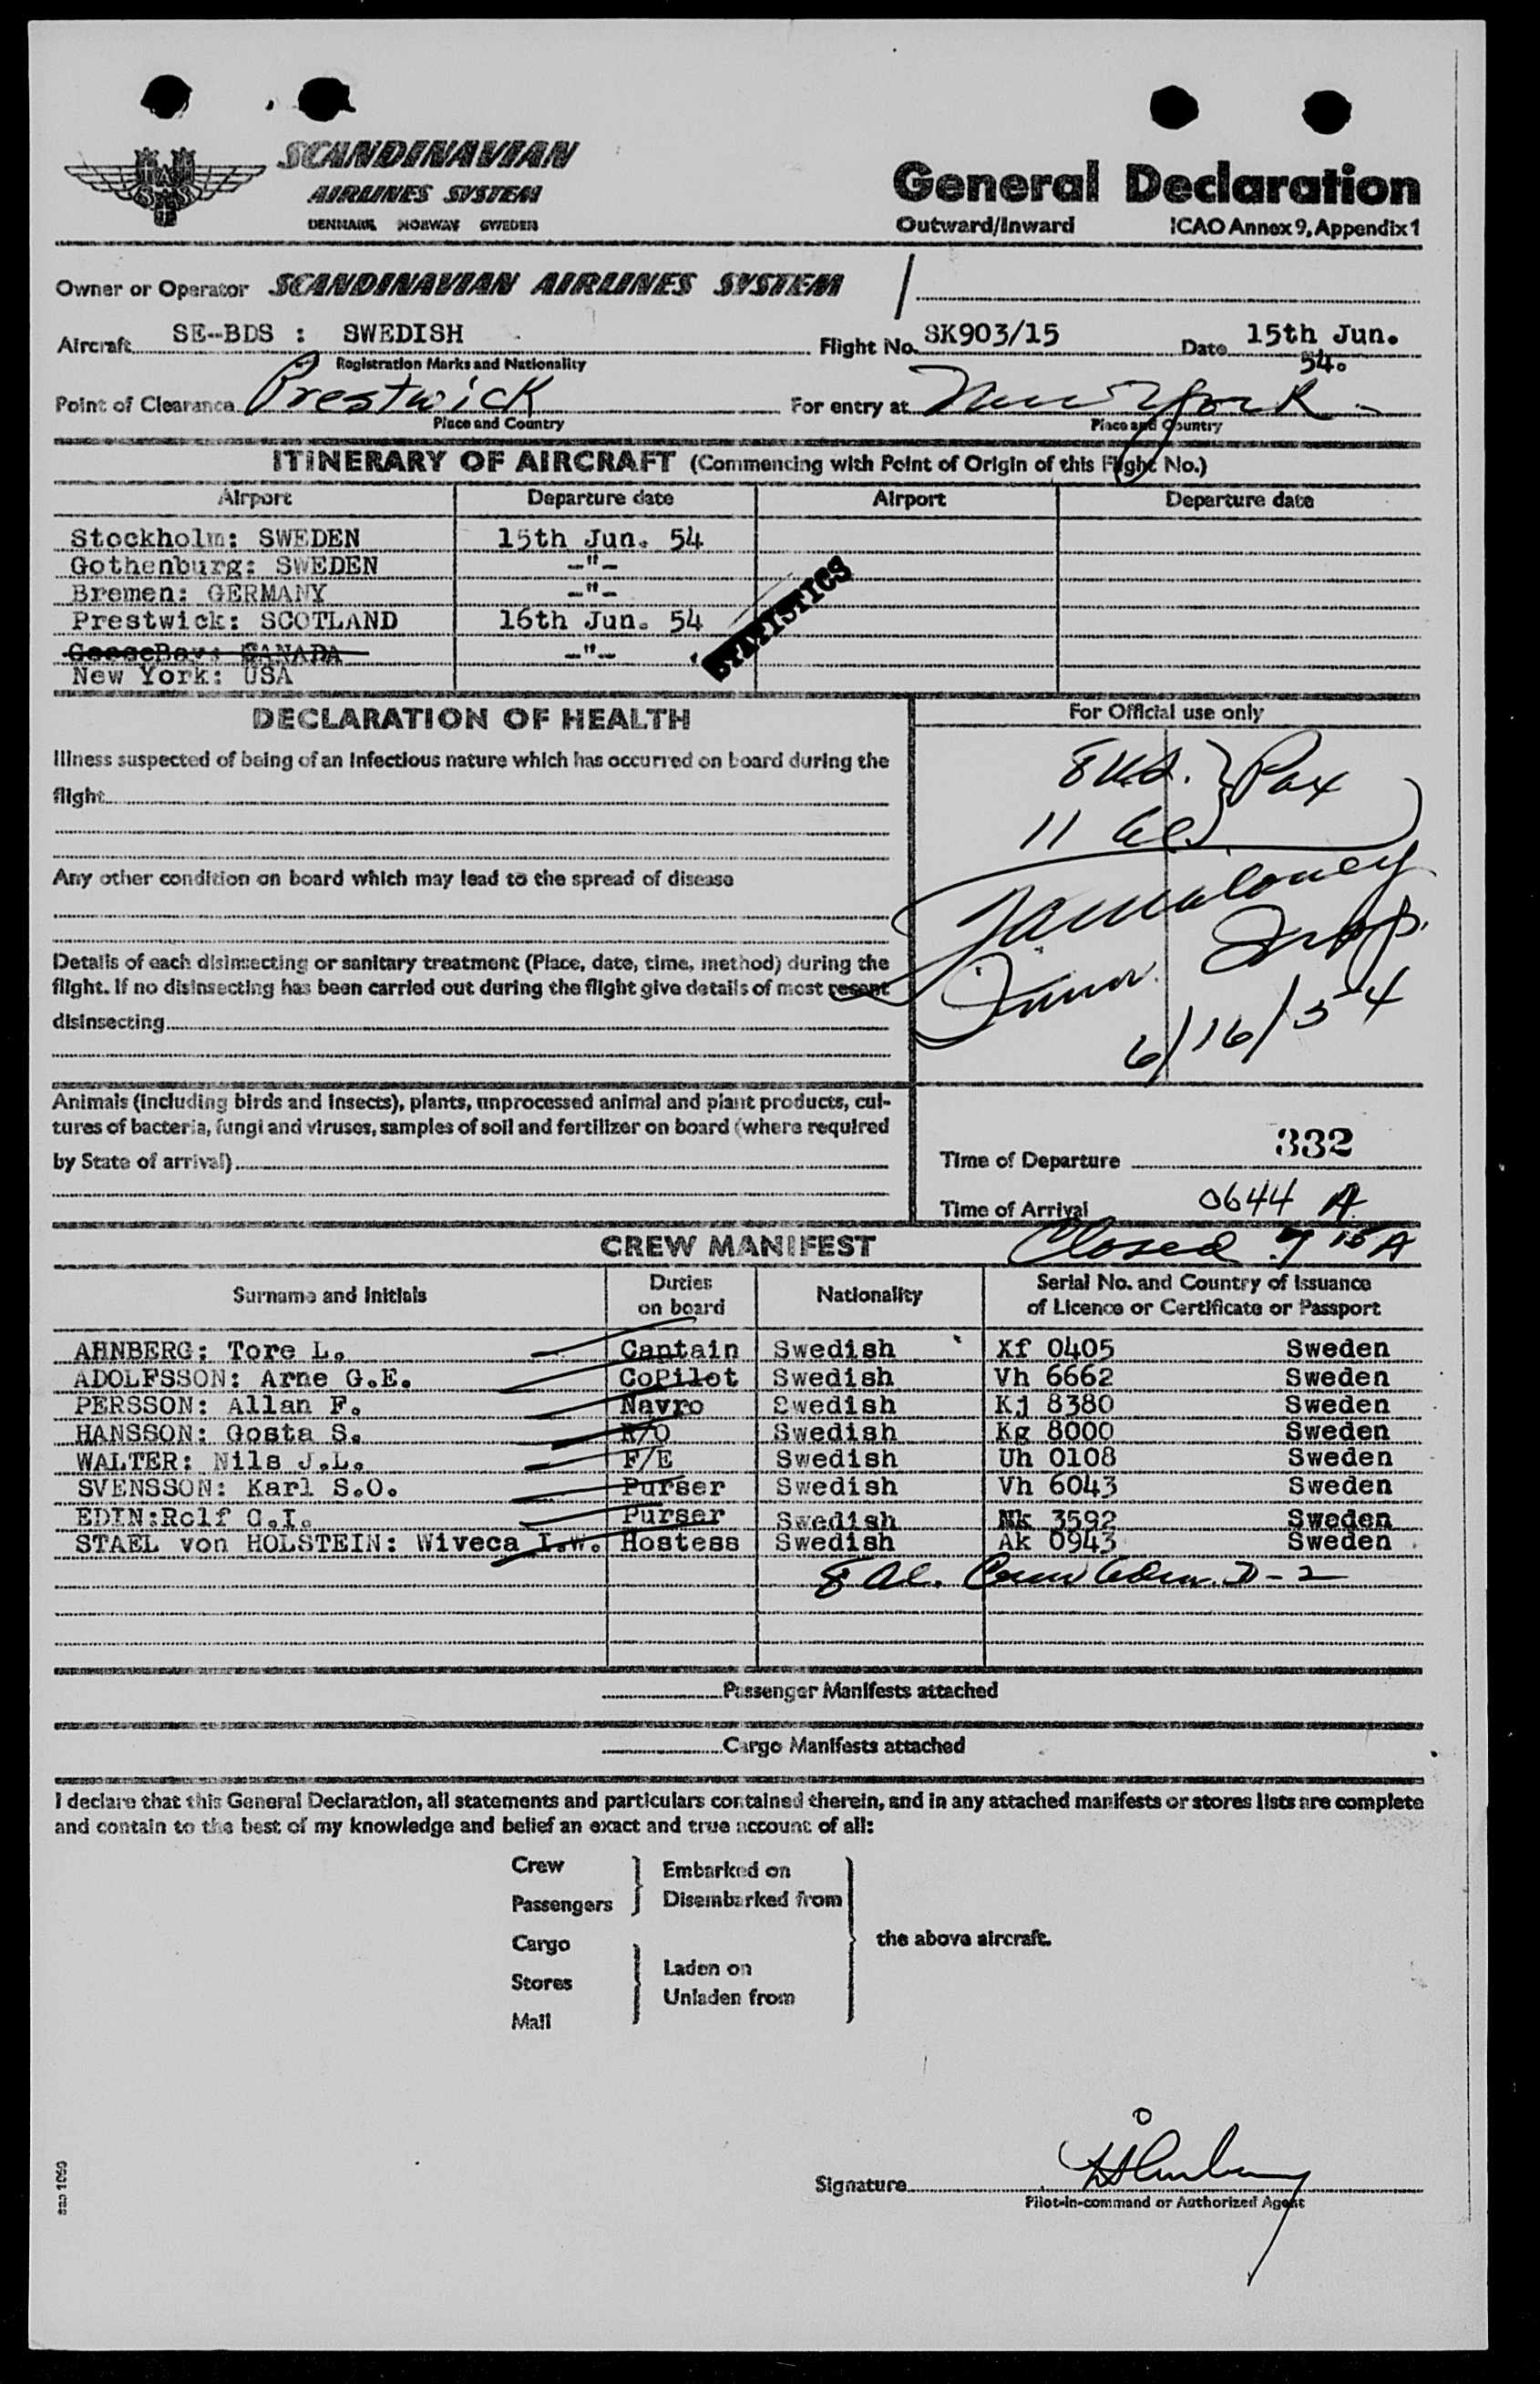 SCANDINAVIAN
AIRLINES SYSTEM
DENMARK NORWAY SWEDEN
General Declaration
Outward/Inward ICAO Annex 9, Appendix 1
Owner or Operator SCANDINAVIAN AIRLINES SYSTEM
Aircraft SE-BDS : SWEDISH Flight No. SK903/15 Date 15th Jun.
54.
Registration Marks and Nationality
Point of Clearance Prestwick For entry at New York
Place and Country Place and Country
ITINERARY OF AIRCRAFT (Commencing with Point of Origin of this Flight No.)
Airport Departure date Airport Departure date
Stockholm: SWEDEN 15th Jun. 54
Gothenburg: SWEDEN -"-
Bremen: GERMANY -"-
Prestwick: SCOTLAND 16th Jun. 54
GooseBay: CANADA -"-
New York: USA
STATISTICS
DECLARATION OF HEALTH
For Official use only
Illness suspected of being of an infectious nature which has occurred on board during the
flight
Any other condition on board which may lead to the spread of disease
Details of each disinsecting or sanitary treatment (Place, date, time, method) during the
flight. If no disinsecting has been carried out during the flight give details of most recent
disinsecting
8 U.S. } Pax
11 al.
Immn. Insp.
6/16/54
Animals (including birds and insects), plants, unprocessed animal and plant products, cul-
tures of bacteria, fungi and viruses, samples of soil and fertilizer on board (where required
by State of arrival)
Time of Departure 332
Time of Arrival 0644 A
Closed 7 15 A
CREW MANIFEST
Surname and Initials Duties on board Nationality Serial No. and Country of Issuance of Licence or Certificate or Passport
AHNBERG: Tore L. Captain Swedish Xf 0405 Sweden
ADOLFSSON: Arne G.E. CoPilot Swedish Vh 6662 Sweden
PERSSON: Allan F. Navro Swedish Kj 8380 Sweden
HANSSON: Gosta S. R/O Swedish Kg 8000 Sweden
WALTER: Nils J.L. F/E Swedish Uh 0108 Sweden
SVENSSON: Karl S.O. Purser Swedish Vh 6043 Sweden
EDIN:Rolf C.I. Purser Swedish Nk 3592 Sweden
STAEL von HOLSTEIN: Wiveca I.W. Hostess Swedish Ak 0943 Sweden
8 al. Crew adm. D-2
Passenger Manifests attached
Cargo Manifests attached
I declare that this General Declaration, all statements and particulars contained therein, and in any attached manifests or stores lists are complete
and contain to the best of my knowledge and belief an exact and true account of all:
Crew
Passengers
Embarked on
Disembarked from
Cargo
Stores
Mail
Laden on
Unladen from
the above aircraft.
Signature
Pilot-in-command or Authorized Agent
sas 1060